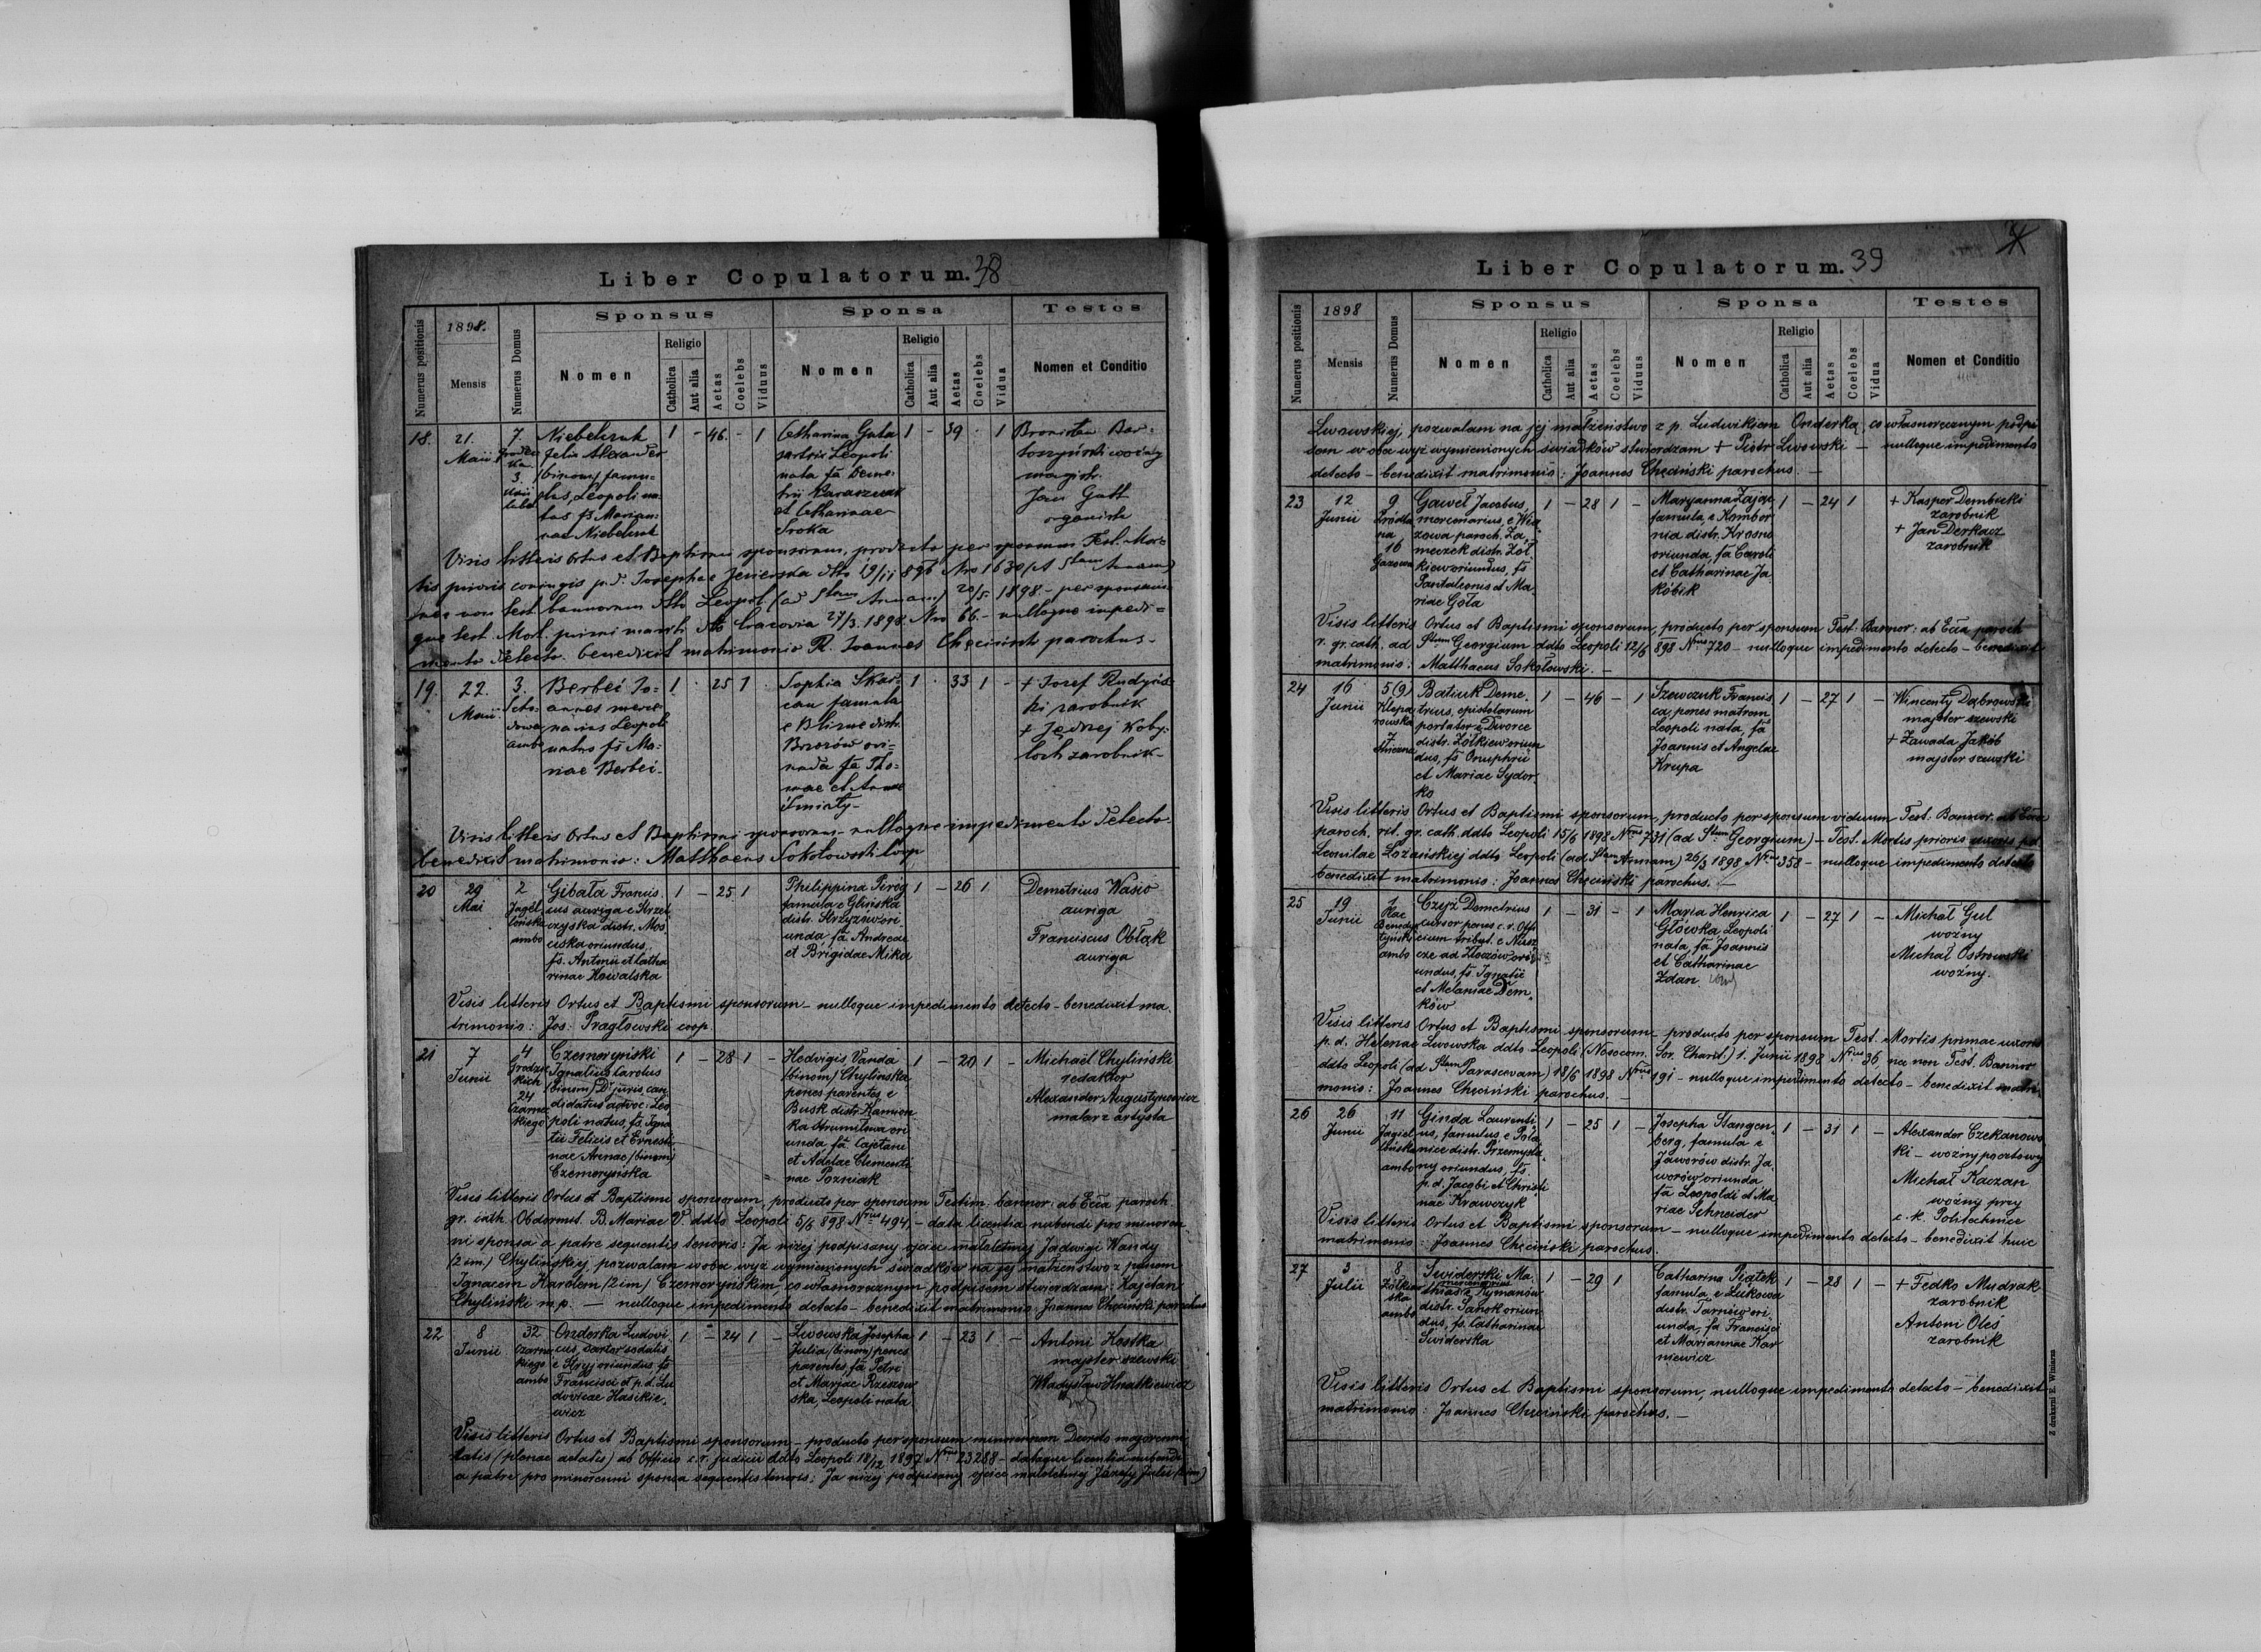 Liber Copulatorum. 38
Numerus positionis
1898.
Mensis
Numerus Domus
Sponsus
Nomen
Religio
Catholica
Aut alia
Aetas
Coelebs
Viduus
Sponsa
Nomen
Religio
Catholica
Aut alia
Aetas
Coelebs
Vidua
Testes
Nomen et Conditio
18.
21.
Maii
7.
3.
Niebelczuk
Felix Alexander
(binom) famu-
lus, Leopoli na-
tus fs Marian-
nae Niebelczuk
1 - 46 - 1
Catharina Guta
sartrix Leopoli
nata fa Deme-
trii
et Catharinae
Sroka
1 - 39 - 1
Bronisław Bar-
toszyński woźny
magistr.
Jan Gatt
organista
Visis litteris Ortus et Baptismi sponsorum, producto per sponsum Test. Mor-
tis prioris coniugis p.d. Josephae Jezierska ddto 19/11 896 Nro 1630 (ad Stam Annam)
nec non Test. bannorum ddto Leopol. (ad Stam Annam) 20/5. 1898 - per sponsam
que test. Mort. primi mariti ddto Cracovia 27/3. 1898. Nro 66. - nulloque impedi-
mento detecto. benedixit matrimonio R. Joannes Chęciński parochus -
19.
22.
Maii
3.
ambo
Berbeć Jo-
annes merce-
narius Leopoli
natus fs Ma-
riae Berbeć -
1 - 25 1
Sophia Skar-
can famula
e Blizne distr.
Brzozów ori-
unda fa Tho-
mae et Annae
Śmiały -
1 - 33 1 -
+ Jozef Rudycis-
ki zarobnik
+ Jędrzej Koby-
loch zarobnik -
Visis litteris Ortus et Baptismi sponsorum - nulloque impedimento detecto
benedixit matrimonio: Matthaeus Sokołowski Coop
20
29
Mai
2
Jagiel-
lońska
ambo
Gibała Francis-
cus auriga e Strzel-
czyska distr. Mos-
ciska oriundus,
fs. Antonii et Catha
rinae Kowalska
1 - 25 1
Philippina Piróg
famula e Glinska
distr. Strzyżów ori-
unda fa Andreae
et Brigidae Mika
1 - 26 1
Demetrius Wasio
auriga
Franciscus Obłąk
auriga
Visis litteris Ortus et Baptismi sponsorum - nulloque impedimento detecto - benedixit ma
trimonio: Jos: Pragłowski coop.
21
7
Junii
4
Grodzic-
kich
24
Czarnec-
kiego
Czemeryński
Ignatius Carolus
(binom) Dr juris, can
didatus advoc: Leo
poli natus, fs. Igna
tii Felicis et Ernesti
nae Annae (binom)
Czemeryńska
1 - 28 1 -
Hedvigis Vanda
(binom) Chylinska
penes parentes, e
Busk distr. Kamion
ka Strumiłowa ori
unda fa Cajetani
et Adelae Clementi
nae Pozniak
1 - 20 1 -
Michael Chyliński
redaktor
Alexander Augustynowicz
malarz artysta
Visis litteris Ortus et Baptismi sponsorum, producto per sponsum Testim. bannor. ab Ecca paroch.
gr. cath. Obdormit. B. Mariae V. ddto Leopoli 5/6 898 Nrus 494, - data licentia nubendi pro minoren
ni sponsa a patre sequentis tenoris: Ja niżej podpisany ojciec małoletniej Jadwigi Wandy
(2 im.) Chylińskiej pozwalam wobec wyż wymienionych świadków na jej małżeństwo z panem
Ignacem Karolem (2 im) Czemeryńskim, co własnoręcznym podpisem stwierdzam: Kajetan
Chyliński m.p. - nulloque impedimento detecto - benedixit matrimonio: Joannes Chęciński parochus
22
8
Junii
32
Czarnec-
kiego
ambo
Onderka Ludovi-
cus, sartor sodalis
e Stryj oriundus fs
Francisci et p.d. Lu
dovicae Hasikie-
wicz
1 - 24 1 -
Lwowska Josepha
Julia (binom) penes
parentes, fa Petri
et Mariae Rzeszow
ska, Leopoli nata
1 - 23 1 -
Antoni Kostka
majster szewski
Władysław Hnatkiewicz
Visis litteris Ortus et Baptismi sponsorum - producto per sponsum minorennem Decreto majorenni
tatis (plenae aetatis) ab Officio c.r. Judicii ddto Leopoli 18/12 1897 Nrus 23288 - dataque licentia nubendi
a patre pro minorenni sponsa sequentis tenoris: Ja niżej podpisany ojciec małoletniej Józefy Julii (2 im)
Liber Copulatorum. 39
Numerus positionis
1898
Mensis
Numerus Domus
Sponsus
Nomen
Religio
Catholica
Aut alia
Aetas
Coelebs
Viduus
Sponsa
Nomen
Religio
Catholica
Aut alia
Aetas
Coelebs
Vidua
Testes
Nomen et Conditio
Lwowskiej, pozwalam na jej małżeństwo z p. Ludwikiem Onderką, co własnoręcznym podpi
sem wobec wyż wymienionych świadków stwierdzam + Piotr Lwowski - nulloque impedimento
detecto - benedixit matrimonio: Joannes Chęciński parochus. -
23
12
Junii
9
Źródla
na
16
Gazowa
Gaweł Jacobus,
mercenarius e Wia
zowa paroch. Za
meczek distr. Żół
kiew oriundus, fs
Pantaleonis et Ma
riae Goła
1 - 28 1 -
Maryanna Zając
famula, e Kombor
nia distr. Krosno
oriunda, fa Caroli
et Catharinae Ja
kóbik
1 - 24 1
+ Kasper Dembicki
zarobnik
+ Jan Derkacz
zarobnik
Visis litteris Ortus et Baptismi sponsorum, producto per sponsum Test: Bannor: ab Ecca paroch
r. gr. cath. ad Stum Georgium ddto Leopoli 12/6 898 Nrus 720 - nulloque impedimento detecto - benedixit
matrimonio: Matthaeus Sokołowski. -
24
16
Junii
5 (9)
Klepa
rowska
7
Batiuk Deme
trius, epistolarum
portator e Dworce
distr. Żółkiew oriun
dus, fs Onuphrii
et Mariae Sydor-
ko
1 - 46 - 1
Szewczuk Francis
ca, penes matrem
Leopoli nata, fa
Joannis et Angelae
Krupa
1 - 27 1 -
Wincenty Dąbrowski
majster szewski
+ Zawada Jakób
majster szewski
Visis litteris Ortus et Baptismi sponsorum, producto per sponsum viduum Test. Bannor. ab Ecca
paroch. rit. gr. cath. ddto Leopoli 15/6 1898 Nrus 731 (ad Stum Georgium) - Test. Mortis prioris uxoris p.d.
Leonilae Łozańskiej ddto Leopoli (ad Stam Annam) 26/3 1898 Nrus 358 - nulloque impedimento detecto
benedixit matrimonio: Joannes Chęciński parochus. -
25
19
Junii
1
Plac
Benedyk
tyński
ambo
Czyż Demetrius
cursor penes c.r. Offi
cium tribut. e Nusz
cze ad Złoczów ori
undus, fs. Ignatii
et Melaniae Dem-
ków
1 - 31 - 1
Maria Henrica
Główka, Leopoli
nata, fa Joannis
et Catharinae
Zdan
1 - 27 1 -
Michał Gul
woźny
Michał Ostrowski
woźny.
Visis litteris Ortus et Baptismi sponsorum - producto per sponsum Test. Mortis primae uxoris
p.d. Helenae Lwowska ddto Leopoli (Nosocom. Sor. Charit.) 1. Junii 1898 Nrus 36 nec non Test. Bannor
ddto Leopoli (ad Stam Parascevam) 18/6 1898 Nrus 191 - nulloque impedimento detecto - benedixit matri
monio: Joannes Chęciński parochus. -
26
26
Junii
11
Jagiel
lońska
ambo
Ginda Laurenti
us, famulus, e Pola
nice distr. Przemysla
ny oriundus, fs.
p.d. Jacobi et Christi
nae Krawczyk
1 - 25 1 -
Josepha Stangen-
berg, famula e
Jaworów distr. Ja
worów oriunda
fa Leopoldi et Ma
riae Schneider
1 - 31 1 -
Alexander Czekanows
ki - woźny pocztowy
Michał Kaczan
woźny przy
c. k. Politechnice
Visis litteris Ortus et Baptismi sponsorum - nulloque impedimento detecto - benedixit huic
matrimonio: Joannes Chęciński parochus.
27
3
Julii
8
Żółkiew
ska
ambo
Swiderski Ma-
mercenarius
thias e Rymanów
distr. Sanok oriun
dus, fs. Catharinae
Swiderska
1 - 29 1
Catharina Piątek
famula, e Lukowa
distr. Tarnów ori-
unda, fa Francisci
et Mariannae Kar
niewicz
1 - 28 1 -
+ Fedko Mudrak
zarobnik
Antoni Oleś
zarobnik
Visis litteris Ortus et Baptismi sponsorum, nulloque impedimento detecto - benedixit
matrimonio: Joannes Chęciński parochus. -
Z drukarni E. Winiarza